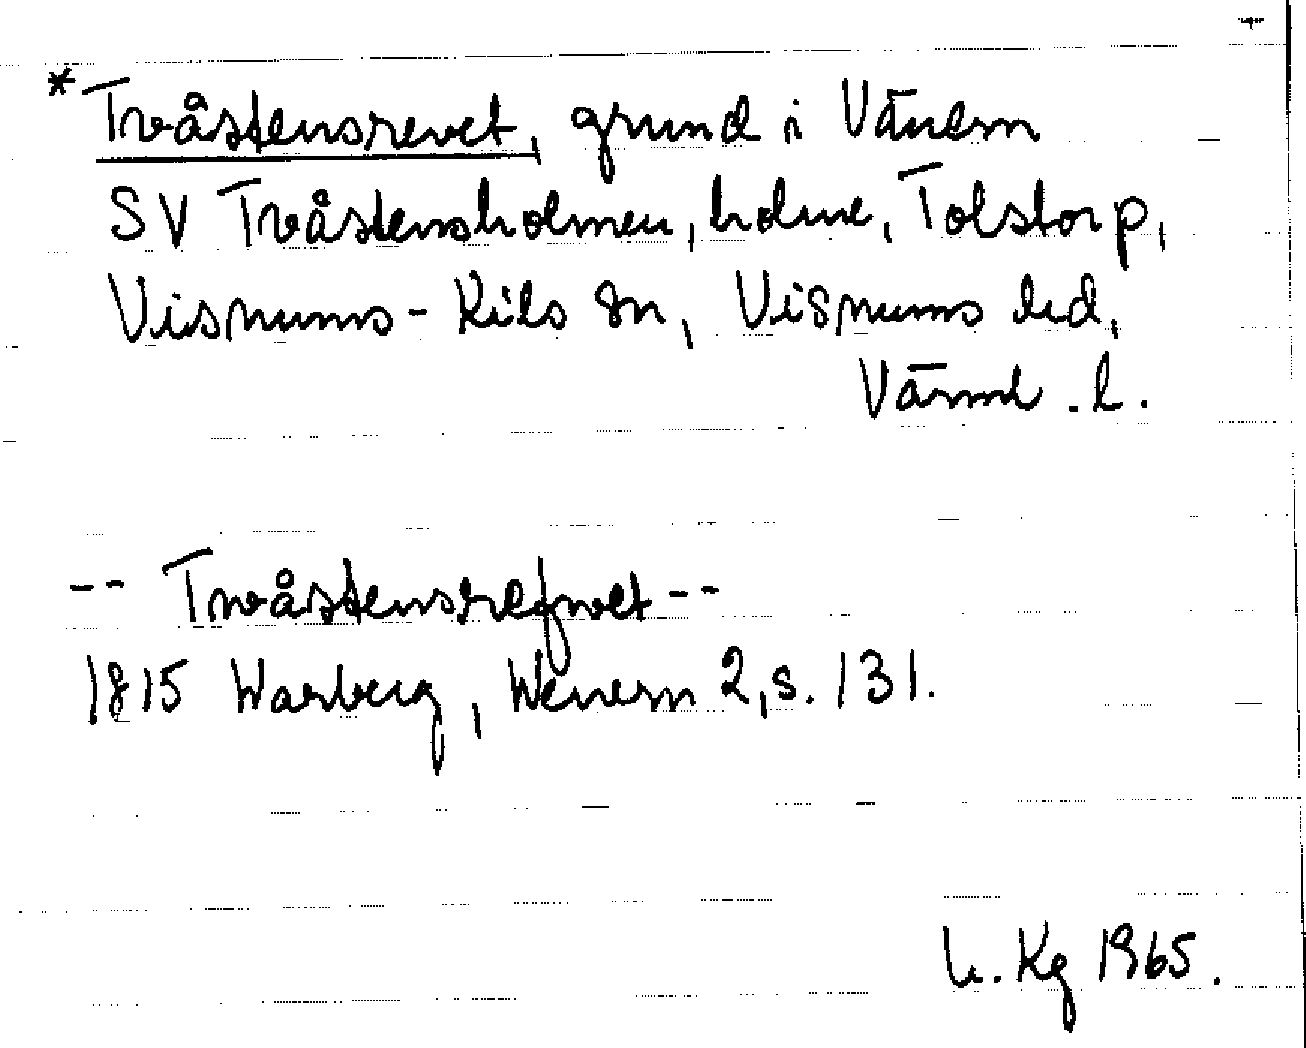 *Tvåstensrevet, grund i Vänern
SV Tvåstensholmen, holme, Tolstorp,
Visnums-Kils sn, Visnums hd,
Värml. l.
-- Twåstensrefwet --
1815 Warberg, Wenern 2, s. 131.
L. Kg 1965.